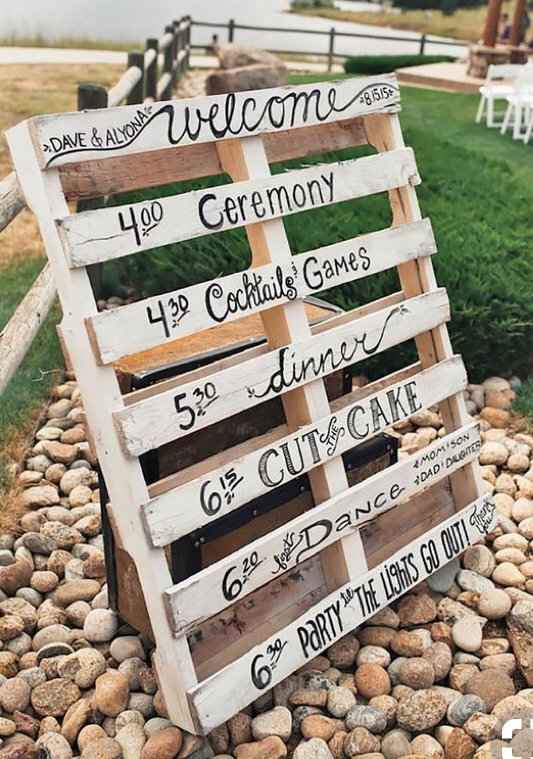 DAVE & ALYONA welcome 8.15.15
4:00 Ceremony
4:30 Cocktails & Games
5:30 dinner
6:15 CUT THE CAKE
6:20 first Dance MOM & SON
DAD & DAUGHTER
6:30 PARTY till THE LIGHTS GO OUT! Thank you!